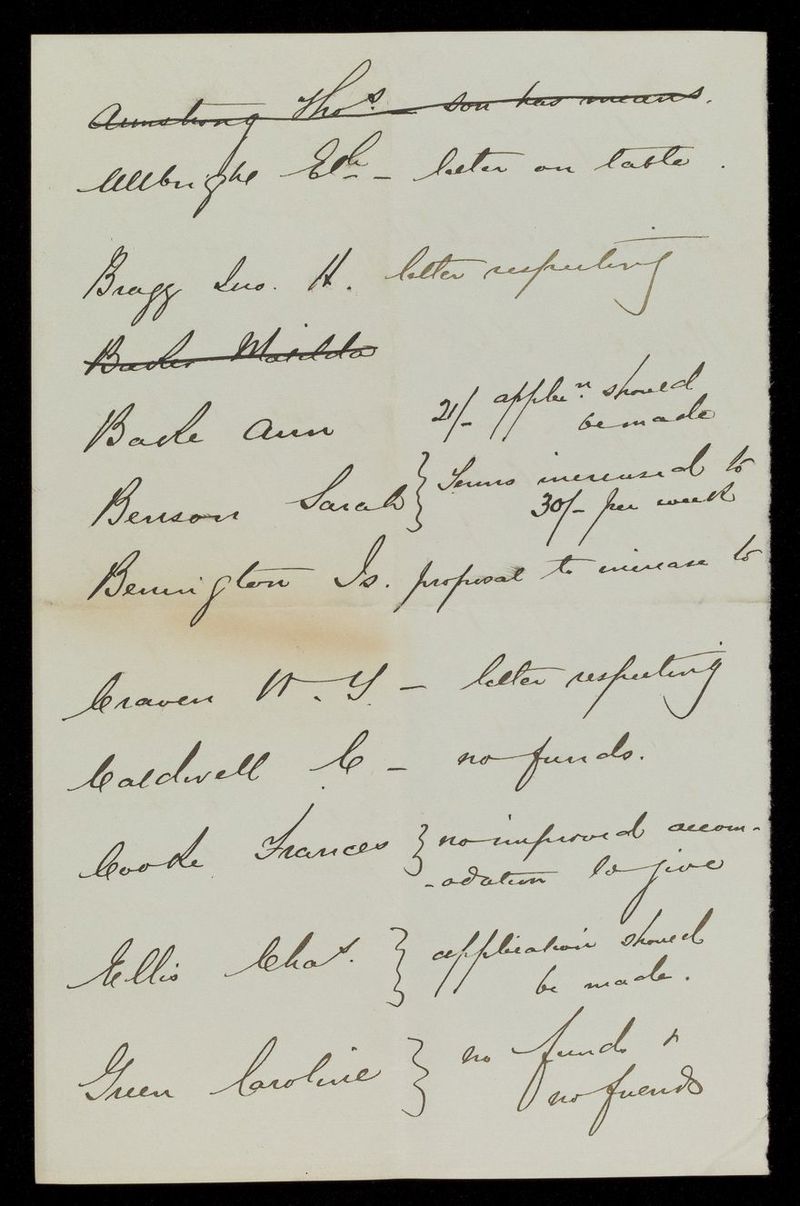 Armstrong Thos. — son has means.
Allbright Eth — letter on table.
Bragg Jno. H. letter respecting
Matilda
Ann 21/- applicn. should
be made
Benson Sarah } Terms increased to
30/- per week
Bennington Is. proposal to increase to
Craven W. Y. — letter respecting
Caldwell C — no funds.
Cooke Frances } no improved accom-
-odation to give
Ellis Chas. } application should
be made.
Green Caroline } no funds &
no friends